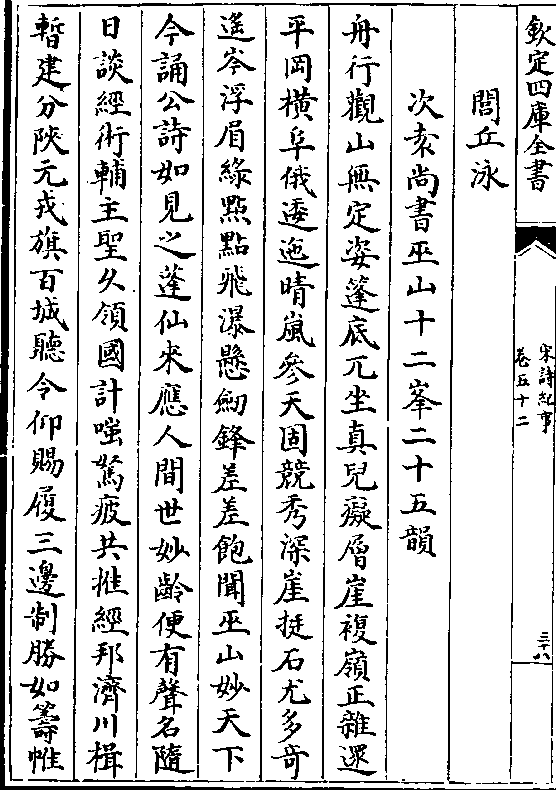 欽定四庫全書
宋詩紀事
卷五十二
三十八
閭丘泳
次袁尚書巫山十二峯二十五韻
舟行觀山無定姿篷底兀坐真兒癡層崖複嶺正雜遝
平岡橫阜俄逶迤晴嵐參天固競秀深崖挺石尤多奇
遙岑浮眉綠點點飛瀑懸劒鋒差差飽聞巫山妙天下
今誦公詩如見之蓬仙来應人間世妙齡便有聲名隨
日談經術輔主聖久領國計嗤駑疲共推經邦濟川楫
暫建分陝元戎旗百城聽令仰賜履三邊制勝如籌帷